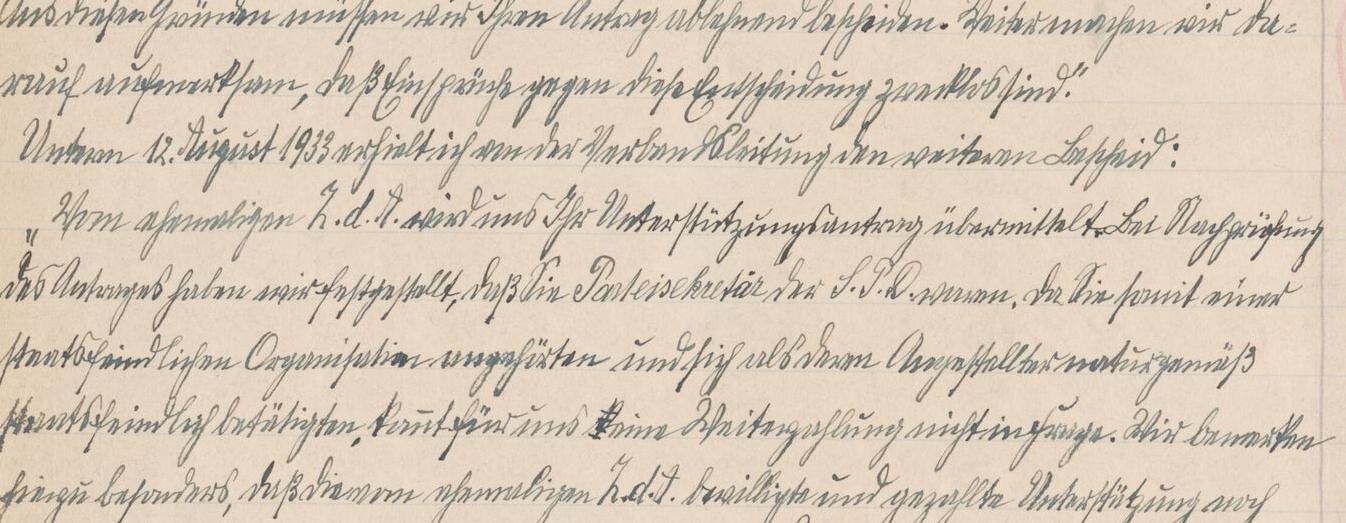 Aus diesen Gründen müssen wir Ihren Antrag ablehnend bescheiden. Weiter machen wir da-
rauf aufmerksam, daß Einsprüche gegen diese Entscheidung zwecklos sind."
Unterm 12. August 1933 erhielt ich von der Verbandsleitung den weiteren Bescheid:
„Vom ehemaligen Z.d.A. wird uns Ihr Unterstützungsantrag übermittelt. Bei Nachprüfung
des Antrages haben wir festgestellt, daß Sie Parteisekretär der S.P.D. waren. Da Sie somit einer
staatsfeindlichen Organisation angehörten und sich als deren Angestellter naturgemäß
staatsfeindlich betätigten, kom̄t für uns eine Weiterzahlung nicht in Frage. Wir bemerken
hierzu besonders, daß die vom ehemaligen Z.d.A. bewilligte und gezahlte Unterstützung noch